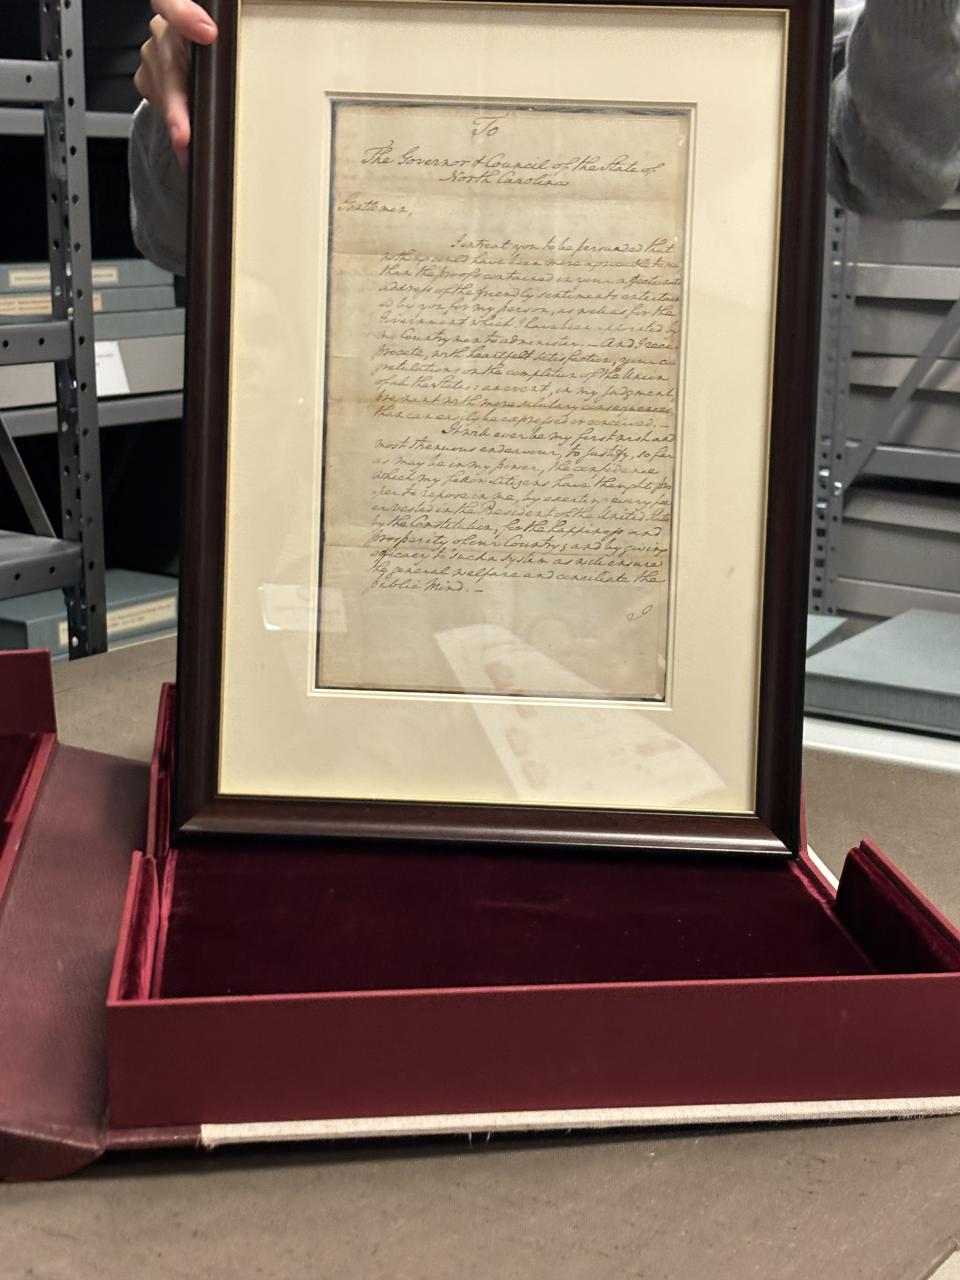 To
The Governor & Council of the State of
North Carolina
Gentlemen,
I entreat you to be persuaded that
nothing could have been more agreeable to me
than the proofs contained in your affectionate
address of the friendly sentiments entertain
ed by you for my person, as well as for the
Government which I have been appointed by
my Countrymen to administer. — And I reci
procate, with heartfelt satisfaction, your con
gratulations on the completion of the Union
of all the States: an event, in my judgment,
pregnant with more salutary consequences
than can easily be expressed or conceived. —
It will ever be my first wish and
most strenuous endeavour, to justify, so far
as may be in my power, the confidence
which my fellow Citizens have thought pro
per to repose in me, by exerting every power
vested in the President of the United States
by the Constitution, for the happiness and
prosperity of our Country; and by giving
efficacy to such a system as will ensure
the general welfare and conciliate the
public Mind. —
I